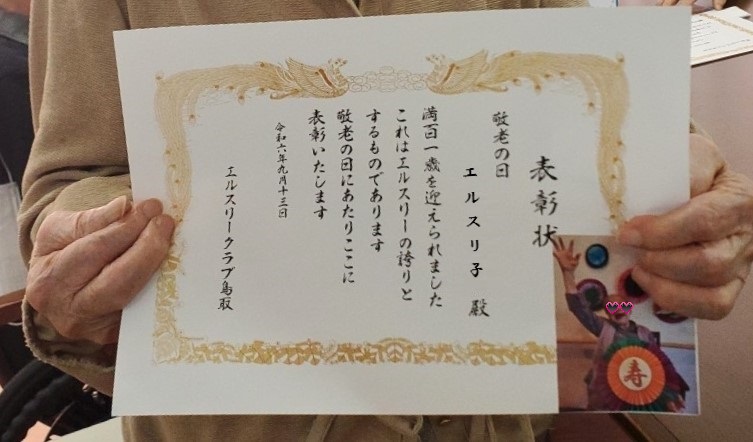 表彰状
敬老の日
エルスリ子 殿
満百一歳を迎えられました
これはエルスリーの誇りと
するものであります
敬老の日にあたりここに
表彰いたします
令和六年九月十三日
エルスリークラブ鳥取
寿